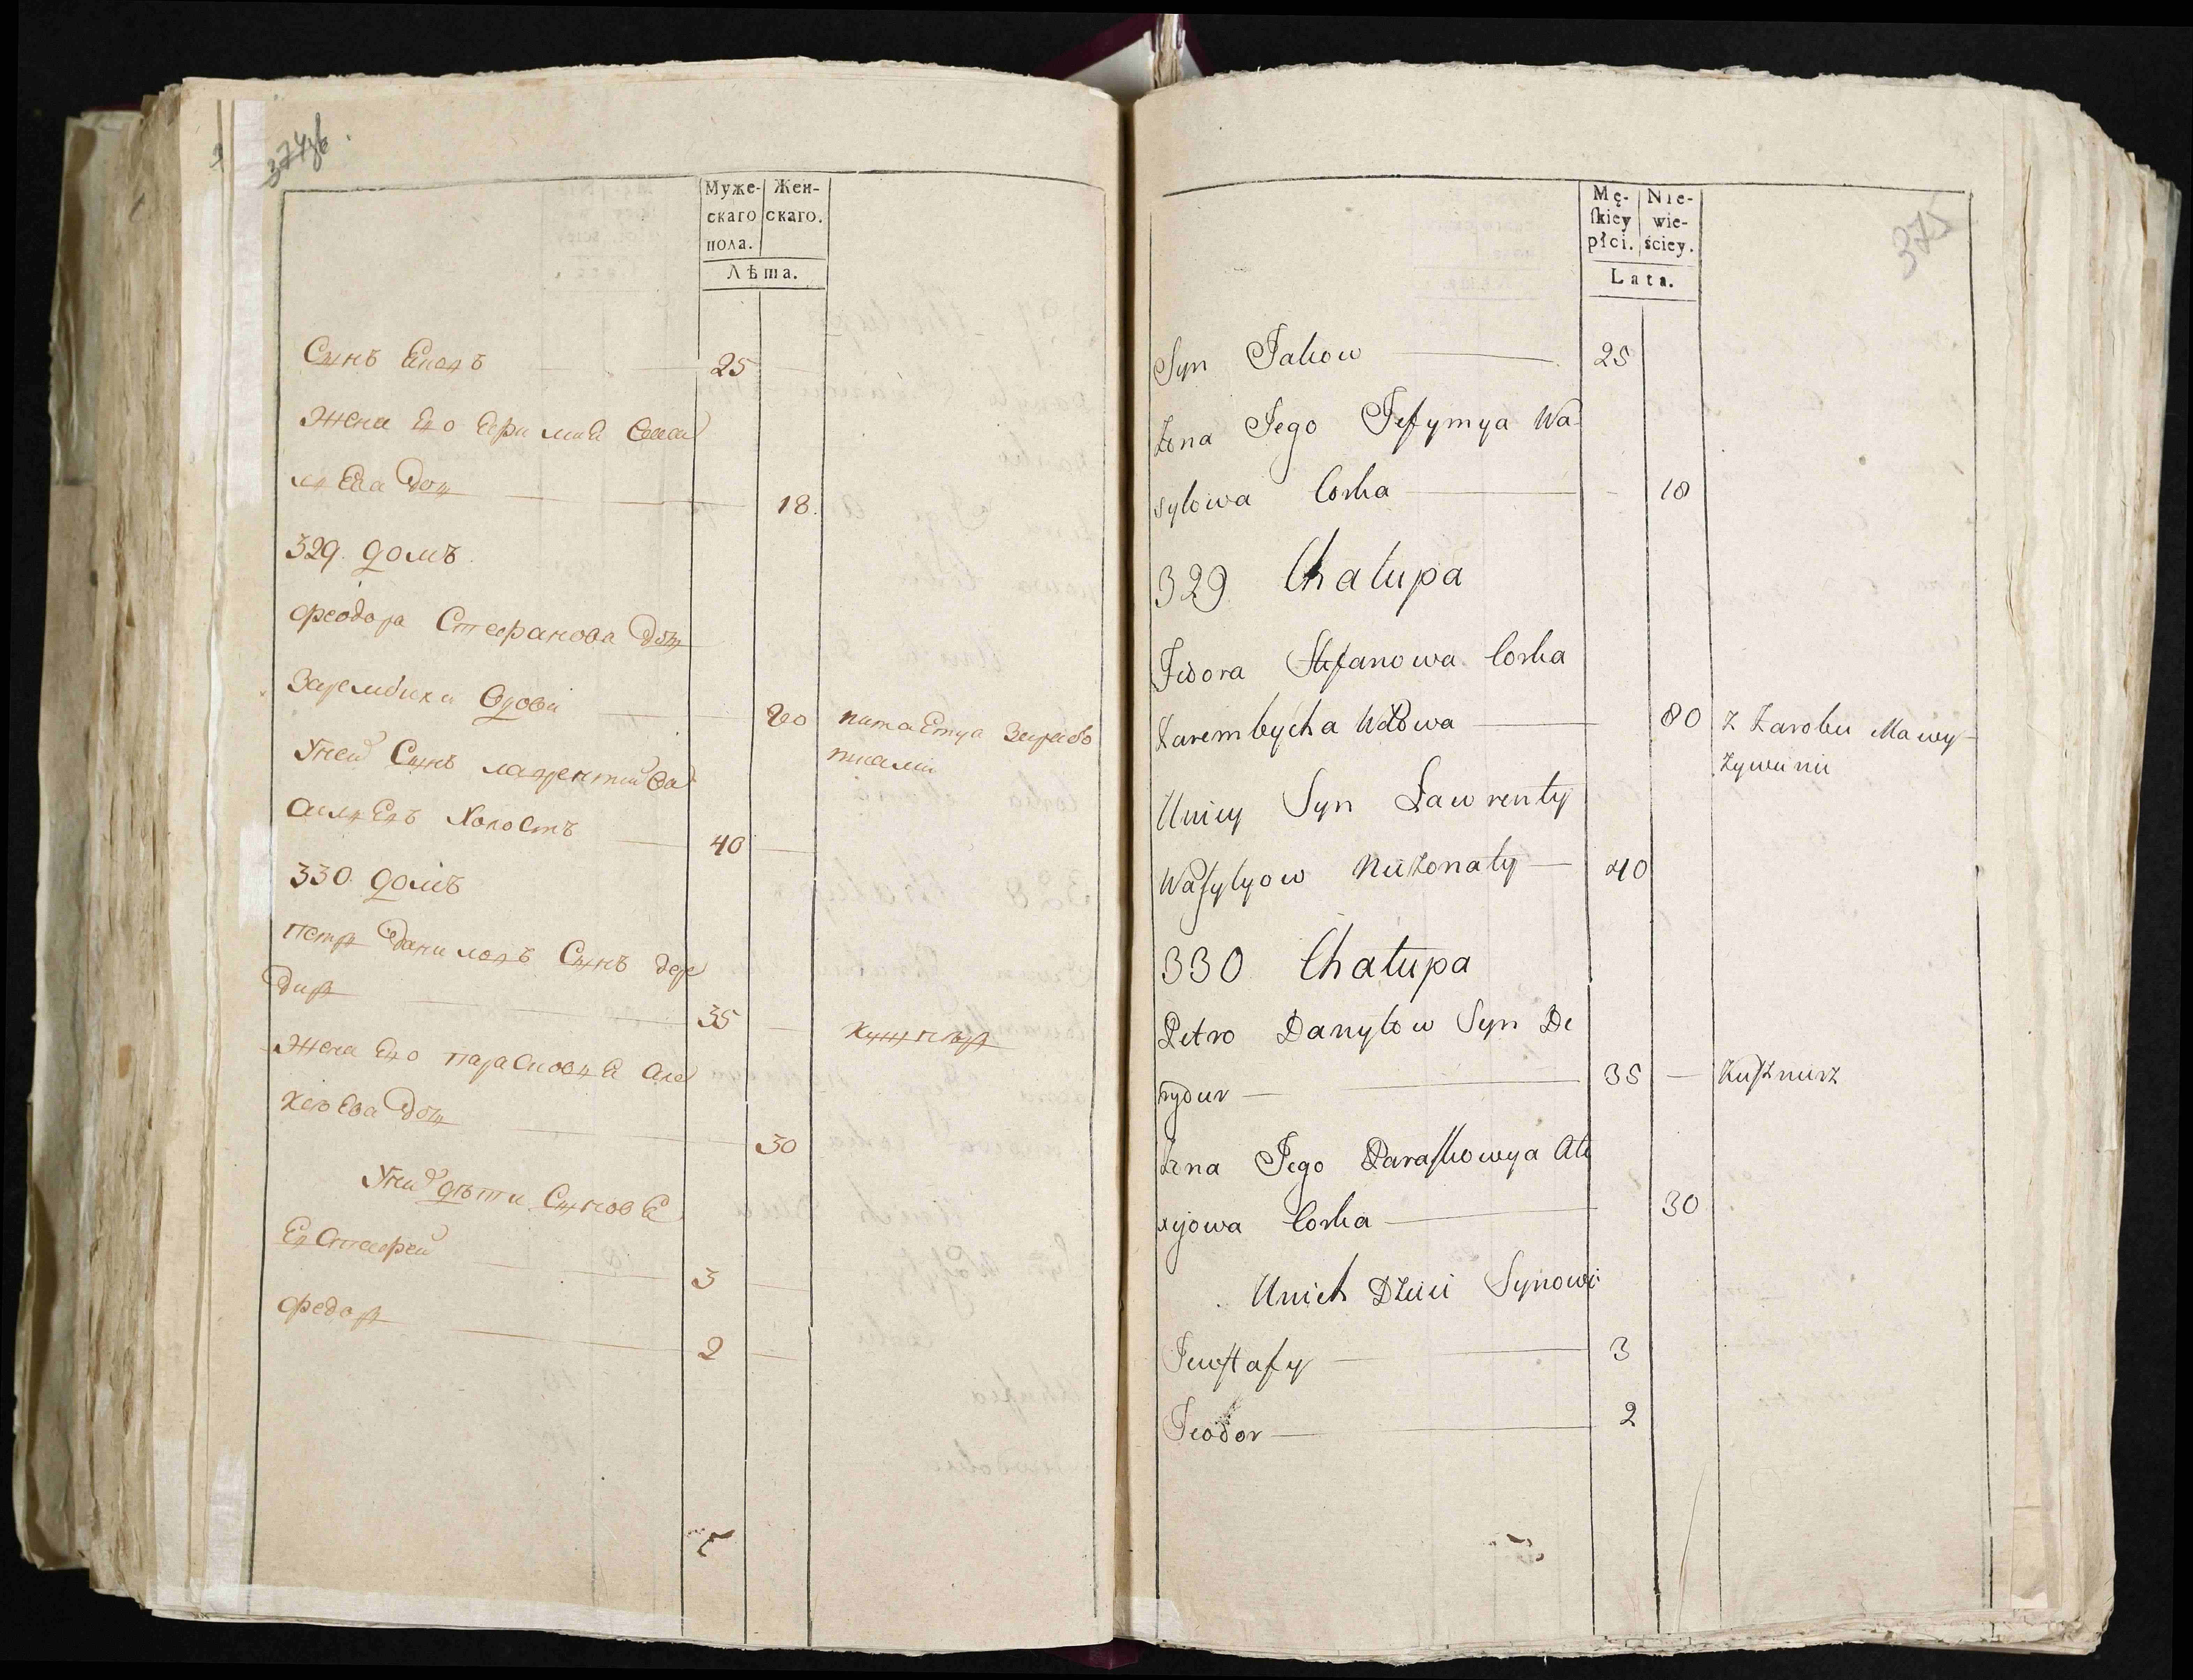 374зв.
Муже-
скаго
пола.
Жен-
скаго.
Лѣта.
Сынъ 25
Жена Его
Ева Дощ 18.
329. домъ
Феодора Стефанова Дощ
Зарембиха Вдова 80 питаетца зарабо
тками
Унеи Сынъ Лаврентии Ва
силЕвъ Холостъ 40
330. домъ
Петръ Даниловъ Сынъ Дере
диръ 35 Кушнѣръ
Жена Его Парасковѣя Але
ксѣева Дощ 30
Унихъ дѣти Сыновя
Евстафеи 3
Федоръ 2
375
Mę-
skiey
płci.
Nie-
wie-
ściey.
Lata.
Syn Jakow 25
Żona Jego Jefymya Wa-
sylowa Corka 18
329 Chałupa
Fidora Stefanowa Corka
Zarembycha Wdowa 80 Z Zarobu Ma wy-
Zywinii
Uniey Syn Ławrenty
Wasylyow Nieżonaty 40
330 Chałupa
Petro Danyłow Syn De
rydur 35 Kusznirz
Żona Jego Paraskowya Ale
xijowa Corka 30
Unich Dzieci Synowi
Jewstafy 3
Teodor 2